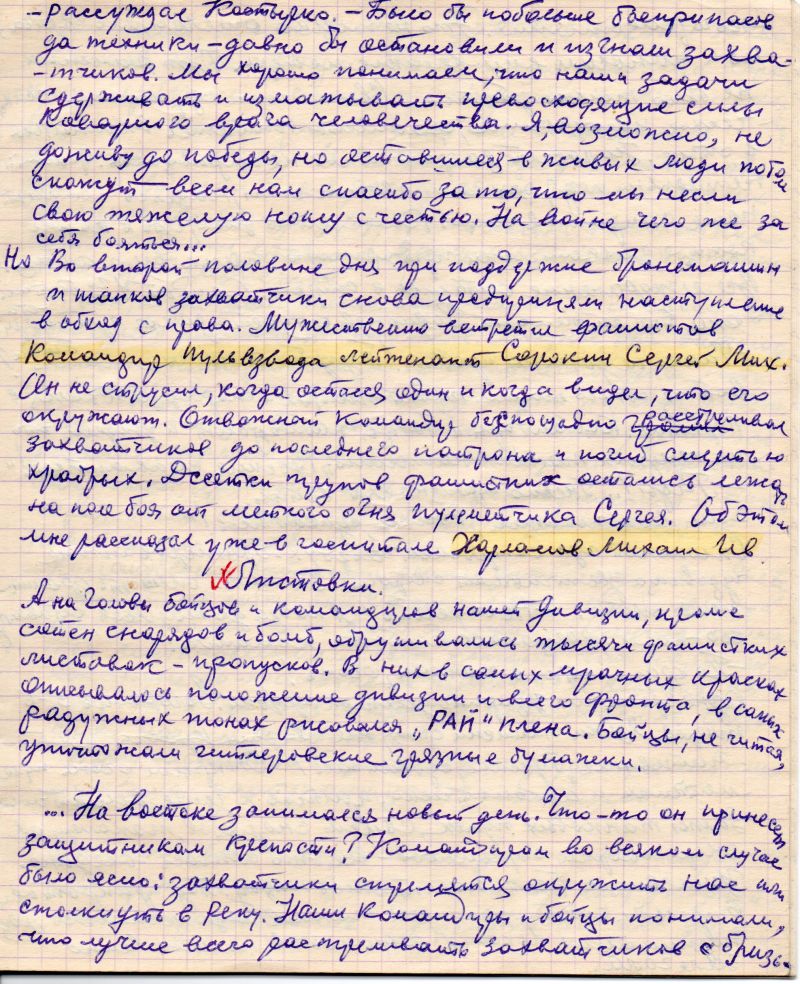 -рассуждал Костырко. - Было бы побольше боеприпасов
да техники - давно бы остановили и изгнали захва-
-тчиков. Мы хорошо понимаем, что наши задачи
сдерживать и изматывать превосходящие силы
коварного врага человечества. Я, возможно, не
доживу до победы, но оставшиеся в живых люди потом
скажут всем нам спасибо за то, что мы несли
свою тяжелую ношу с честью. На войне чего же за
себя бояться...
Но Во второй половине дня при поддержке бронемашин
и танков захватчики снова предприняли наступление
в обход с права. Мужественно встретил фашистов
Командир пульвзвода лейтенант Сорокин Сергей Мих.
Он не струсил, когда остался один и когда видел, что его
окружают. Отважный командир беспощадно расстреливал
захватчиков до последнего патрона и погиб смертью
храбрых. Десятки трупов фашистких остались лежать
на поле боя от меткого огня пулеметчика Сергея. Об этом
мне рассказал уже в госпитале Харламов Михаил Ив.
Листовки.
А на головы бойцов и командиров нашей дивизии, кроме
сотен снарядов и бомб, обрушивались тысячи фашистких
листовок - пропусков. В них в самых мрачных красках
описывалось положение дивизии и всего фронта, в самых
радужных тонах рисовался "РАЙ" плена. Бойцы, не читая,
уничтожали гитлеровские грязные бумажки.
... На востоке занимался новый день. Что-то он принесет
защитникам крепости? Командирам во всяком случае
было ясно: захватчики стремятся окружить нас или
столкнуть в реку. Наши командиры и бойцы понимали,
что лучше всего растреливать захватчиков с близь-